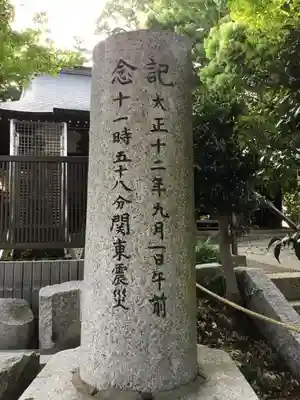 記
大正十二年九月一日午前
念
十一時五十八分関東震災